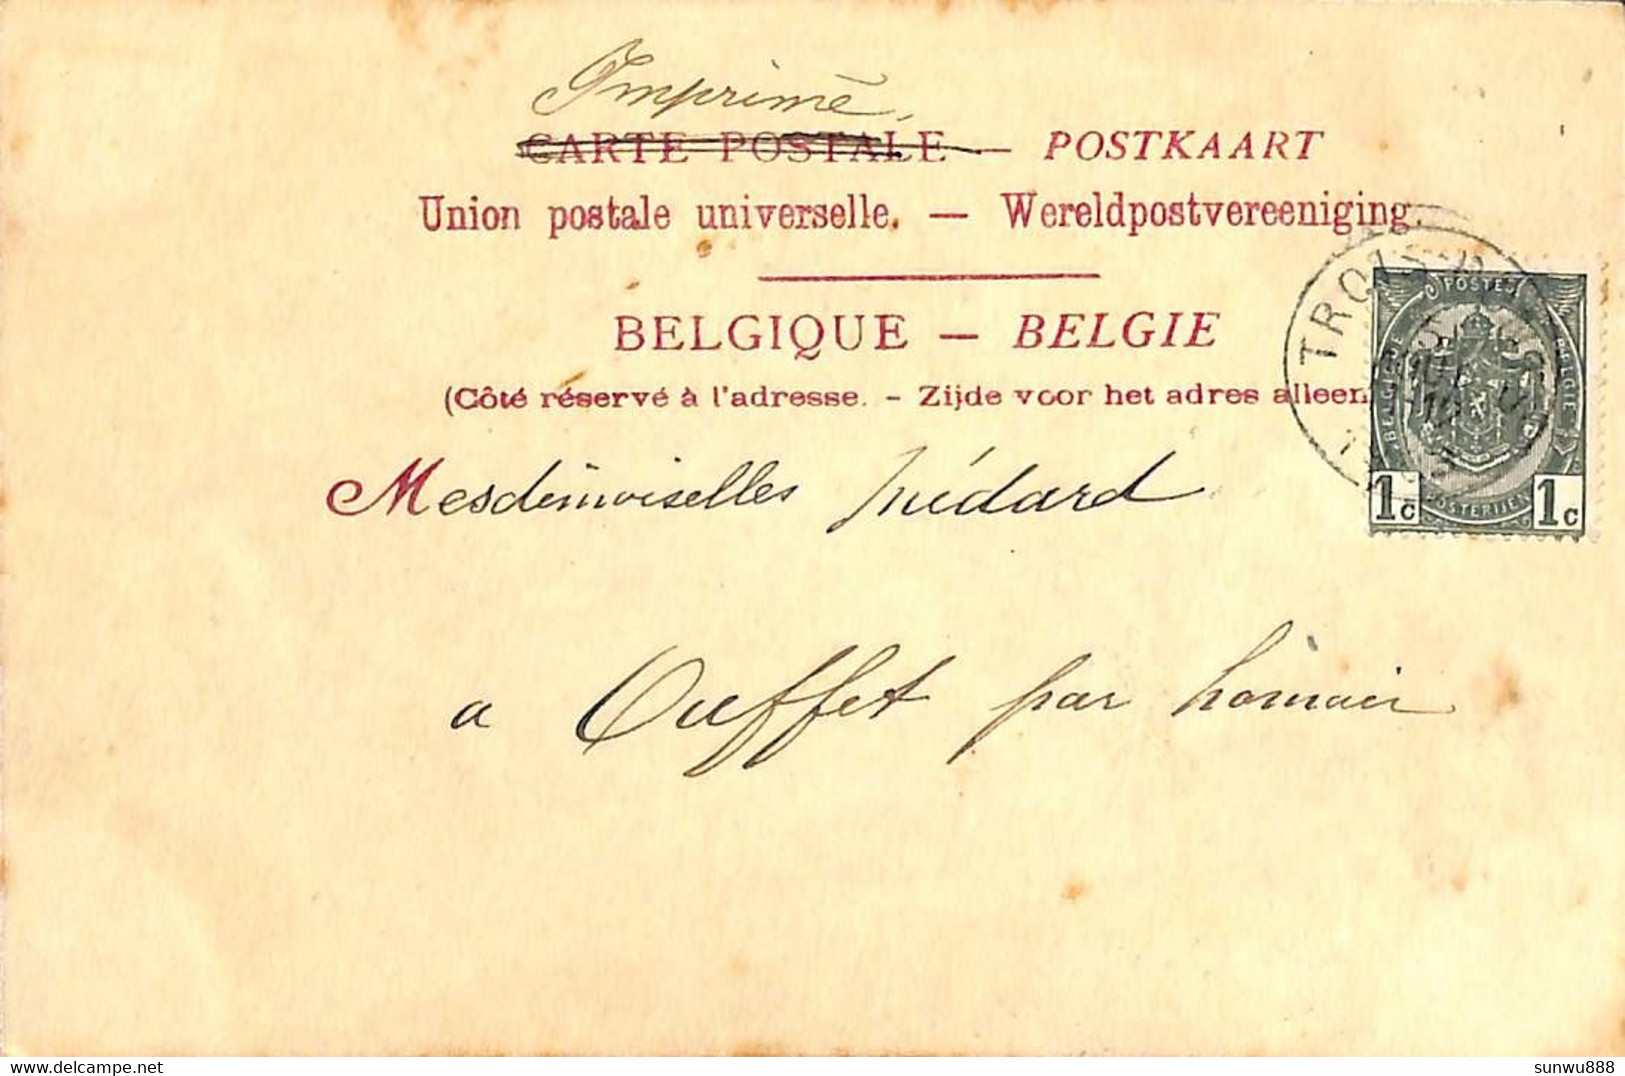 Imprimé,
CARTE POSTALE — POSTKAART
Union postale universelle. — Wereldpostvereeniging.
BELGIQUE — BELGIE
(Côté réservé à l'adresse. - Zijde voor het adres alleen
TROIS-P
POSTES
BELGIQUE BELGIE
1c POSTERIJEN 1c
Mesdemoiselles Médard
a Ouffet par hamoir
sunwu888